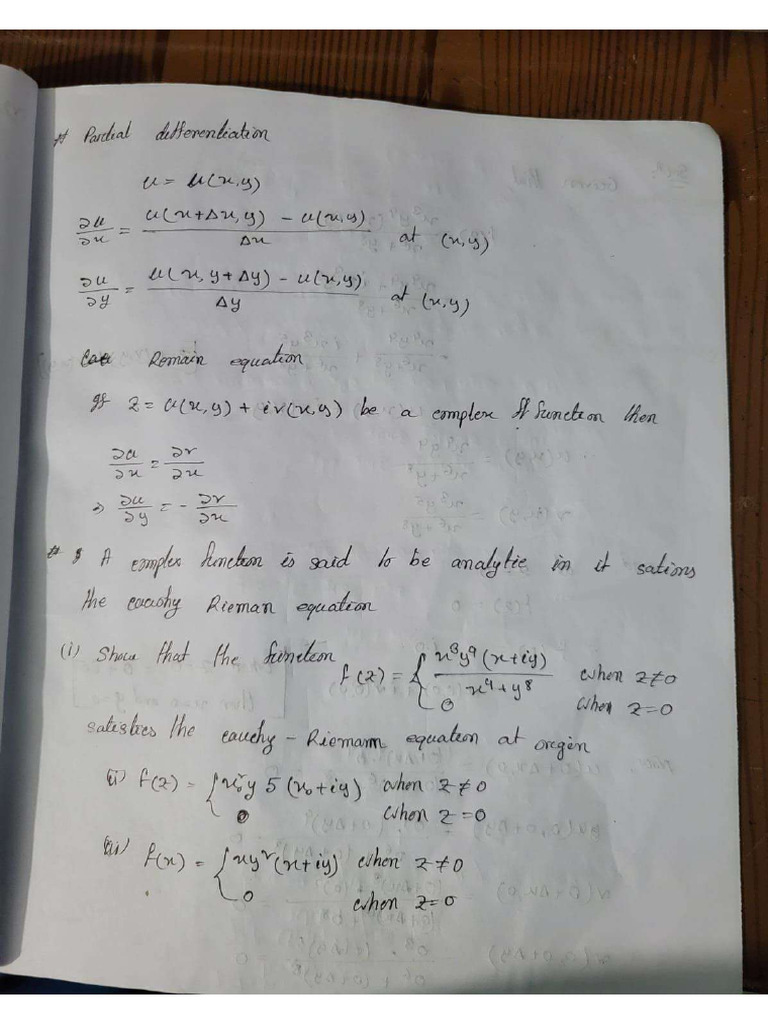 # Partial differentiation
u = u(x,y)
∂u/∂x = (u(x+Δx, y) - u(x,y))/Δx at (x,y)
∂u/∂y = (u(x, y+Δy) - u(x,y))/Δy at (x,y)
Remain equation
If z = u(x,y) + iv(x,y) be a complex function then
∂u/∂x = ∂v/∂x
⇒ ∂u/∂y = -∂v/∂x
# A complex function is said to be analytic in it sations
the cauchy Rieman equation
(i) Show that the function f(z) = { x³y⁹(x+iy)/(x⁴+y⁸) when z≠0
0 when z=0
satisfies the cauchy - Riemann equation at oregin
(i) f(z) = { x²y 5 (x+iy) when z≠0
0 when z=0
(ii) f(x) = { xy²(x+iy) when z≠0
0 when z=0